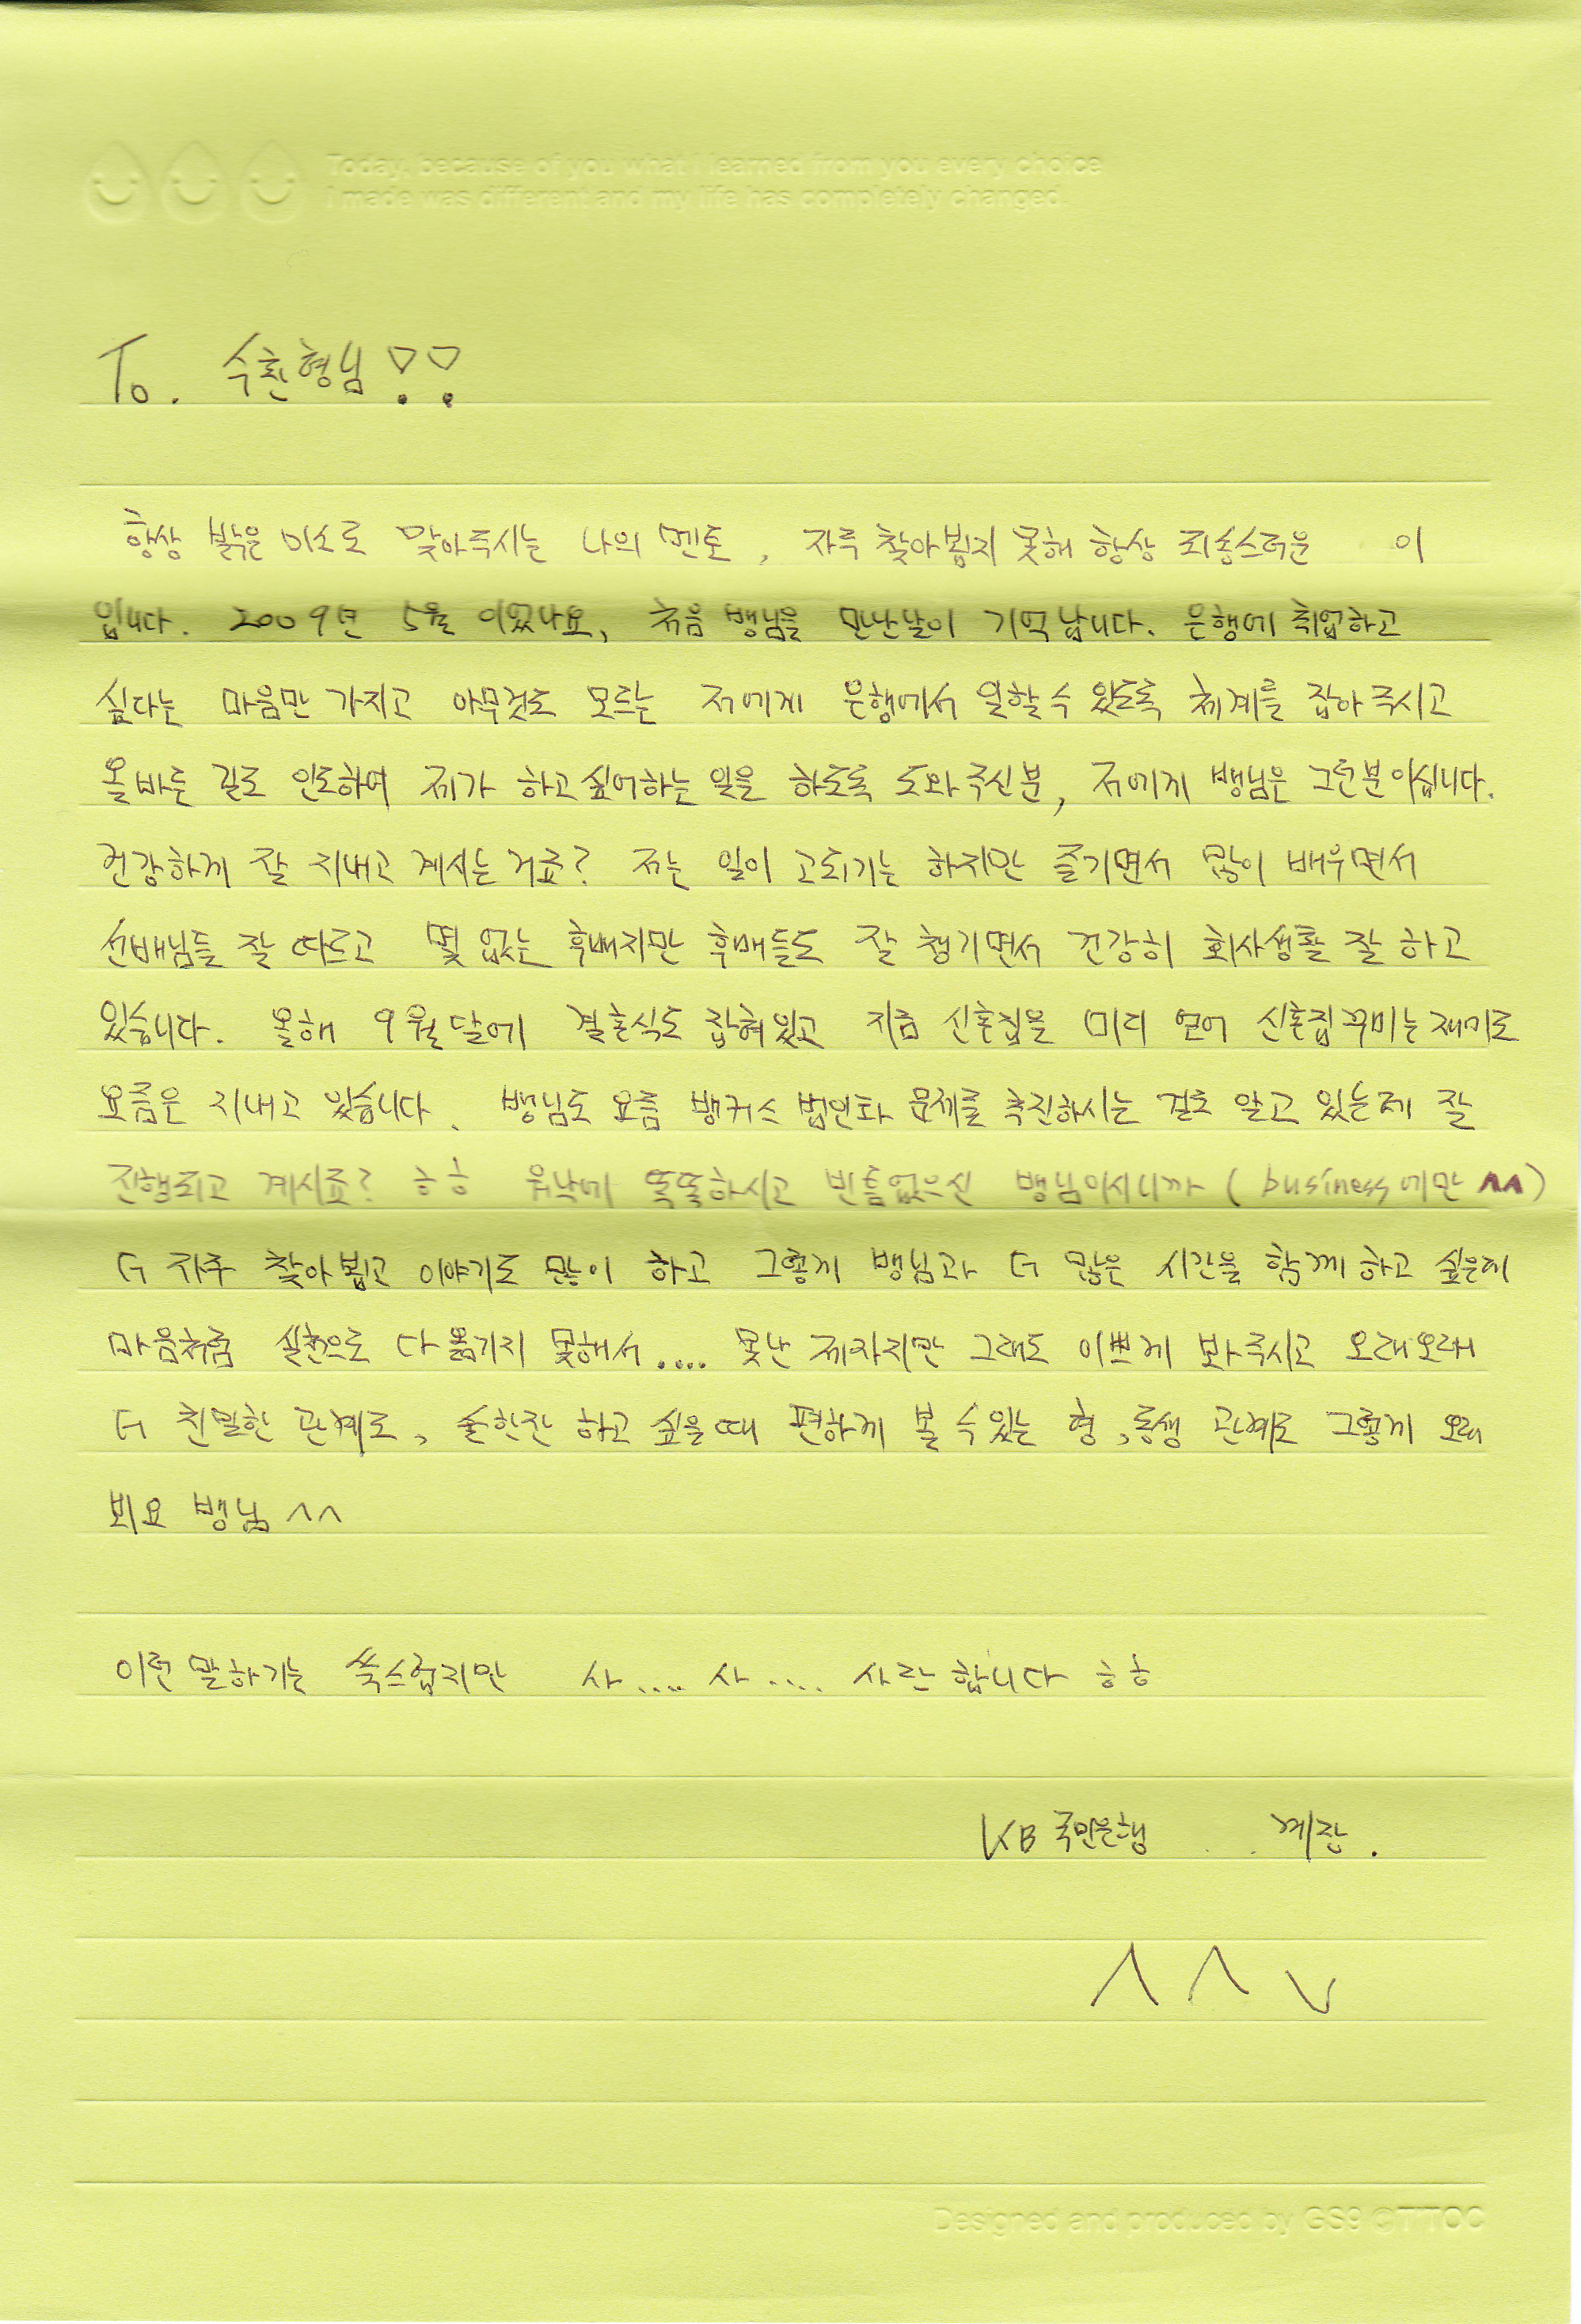 Today, because of you what I learned from you every choice
I made was different and my life has completely changed.
To. 수환형님!!
항상 밝은 미소로 맞아주시는 나의 멘토, 자주 찾아뵙지 못해 항상 죄송스러운 이
입니다. 2009년 5월 이었나요, 처음 뱅님을 만난날이 기억납니다. 은행에 취업하고
싶다는 마음만 가지고 아무것도 모르는 저에게 은행에서 일할 수 있도록 체계를 잡아주시고
올바른 길로 인도하여 제가 하고싶어하는 일을 하도록 도와주신분, 저에게 뱅님은 그런분이십니다.
건강하게 잘 지내고 계시는거죠? 저는 일이 고되기는 하지만 즐기면서 많이 배우면서
선배님들 잘 따르고 몇 없는 후배지만 후배들도 잘 챙기면서 건강히 회사생활 잘 하고
있습니다. 올해 9월달에 결혼식도 잡혀있고 지금 신혼집을 미리 얻어 신혼집꾸미는재미로
요즘은 지내고 있습니다. 뱅님도 요즘 뱅커스 법인화 문제를 추진하시는 걸로 알고 있는데 잘
진행되고 계시죠? ㅎㅎ 워낙에 똑똑하시고 빈틈없으신 뱅님이시니까 (business에만 ^^)
더 자주 찾아뵙고 이야기도 많이 하고 그렇게 뱅님과 더 많은 시간을 함께 하고 싶은데
마음처럼 실천으로 다 옮기지 못해서.... 못난 제자지만 그래도 이쁘게 봐주시고 오래오래
더 친밀한 관계로, 술한잔 하고 싶을때 편하게 볼 수 있는 형,동생 관계로 그렇게 오래
뵈요 뱅님 ^^
이런 말하기는 쑥스럽지만 사.... 사.... 사랑합니다 ㅎㅎ
KB 국민은행 계장.
^^V
Designed and produced by GS9 ©T'TOC